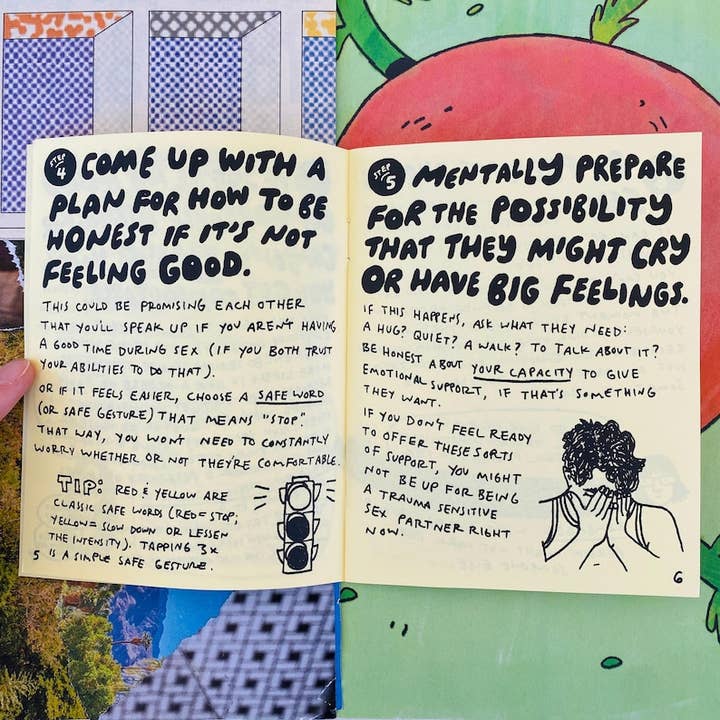 STEP 4 COME UP WITH A
PLAN FOR HOW TO BE
HONEST IF IT'S NOT
FEELING GOOD.
THIS COULD BE PROMISING EACH OTHER
THAT YOU'LL SPEAK UP IF YOU AREN'T HAVING
A GOOD TIME DURING SEX (IF YOU BOTH TRUST
YOUR ABILITIES TO DO THAT).
OR IF IT FEELS EASIER, CHOOSE A SAFE WORD
(OR SAFE GESTURE) THAT MEANS "STOP."
THAT WAY, YOU WON'T NEED TO CONSTANTLY
WORRY WHETHER OR NOT THEY'RE COMFORTABLE.
TIP: RED & YELLOW ARE
CLASSIC SAFE WORDS (RED=STOP;
YELLOW=SLOW DOWN OR LESSEN
THE INTENSITY). TAPPING 3X
IS A SIMPLE SAFE GESTURE.
5
STEP 5 MENTALLY PREPARE
FOR THE POSSIBILITY
THAT THEY MIGHT CRY
OR HAVE BIG FEELINGS.
IF THIS HAPPENS, ASK WHAT THEY NEED:
A HUG? QUIET? A WALK? TO TALK ABOUT IT?
BE HONEST ABOUT YOUR CAPACITY TO GIVE
EMOTIONAL SUPPORT, IF THAT'S SOMETHING
THEY WANT.
IF YOU DON'T FEEL READY
TO OFFER THESE SORTS
OF SUPPORT, YOU MIGHT
NOT BE UP FOR BEING
A TRAUMA SENSITIVE
SEX PARTNER RIGHT
NOW.
6